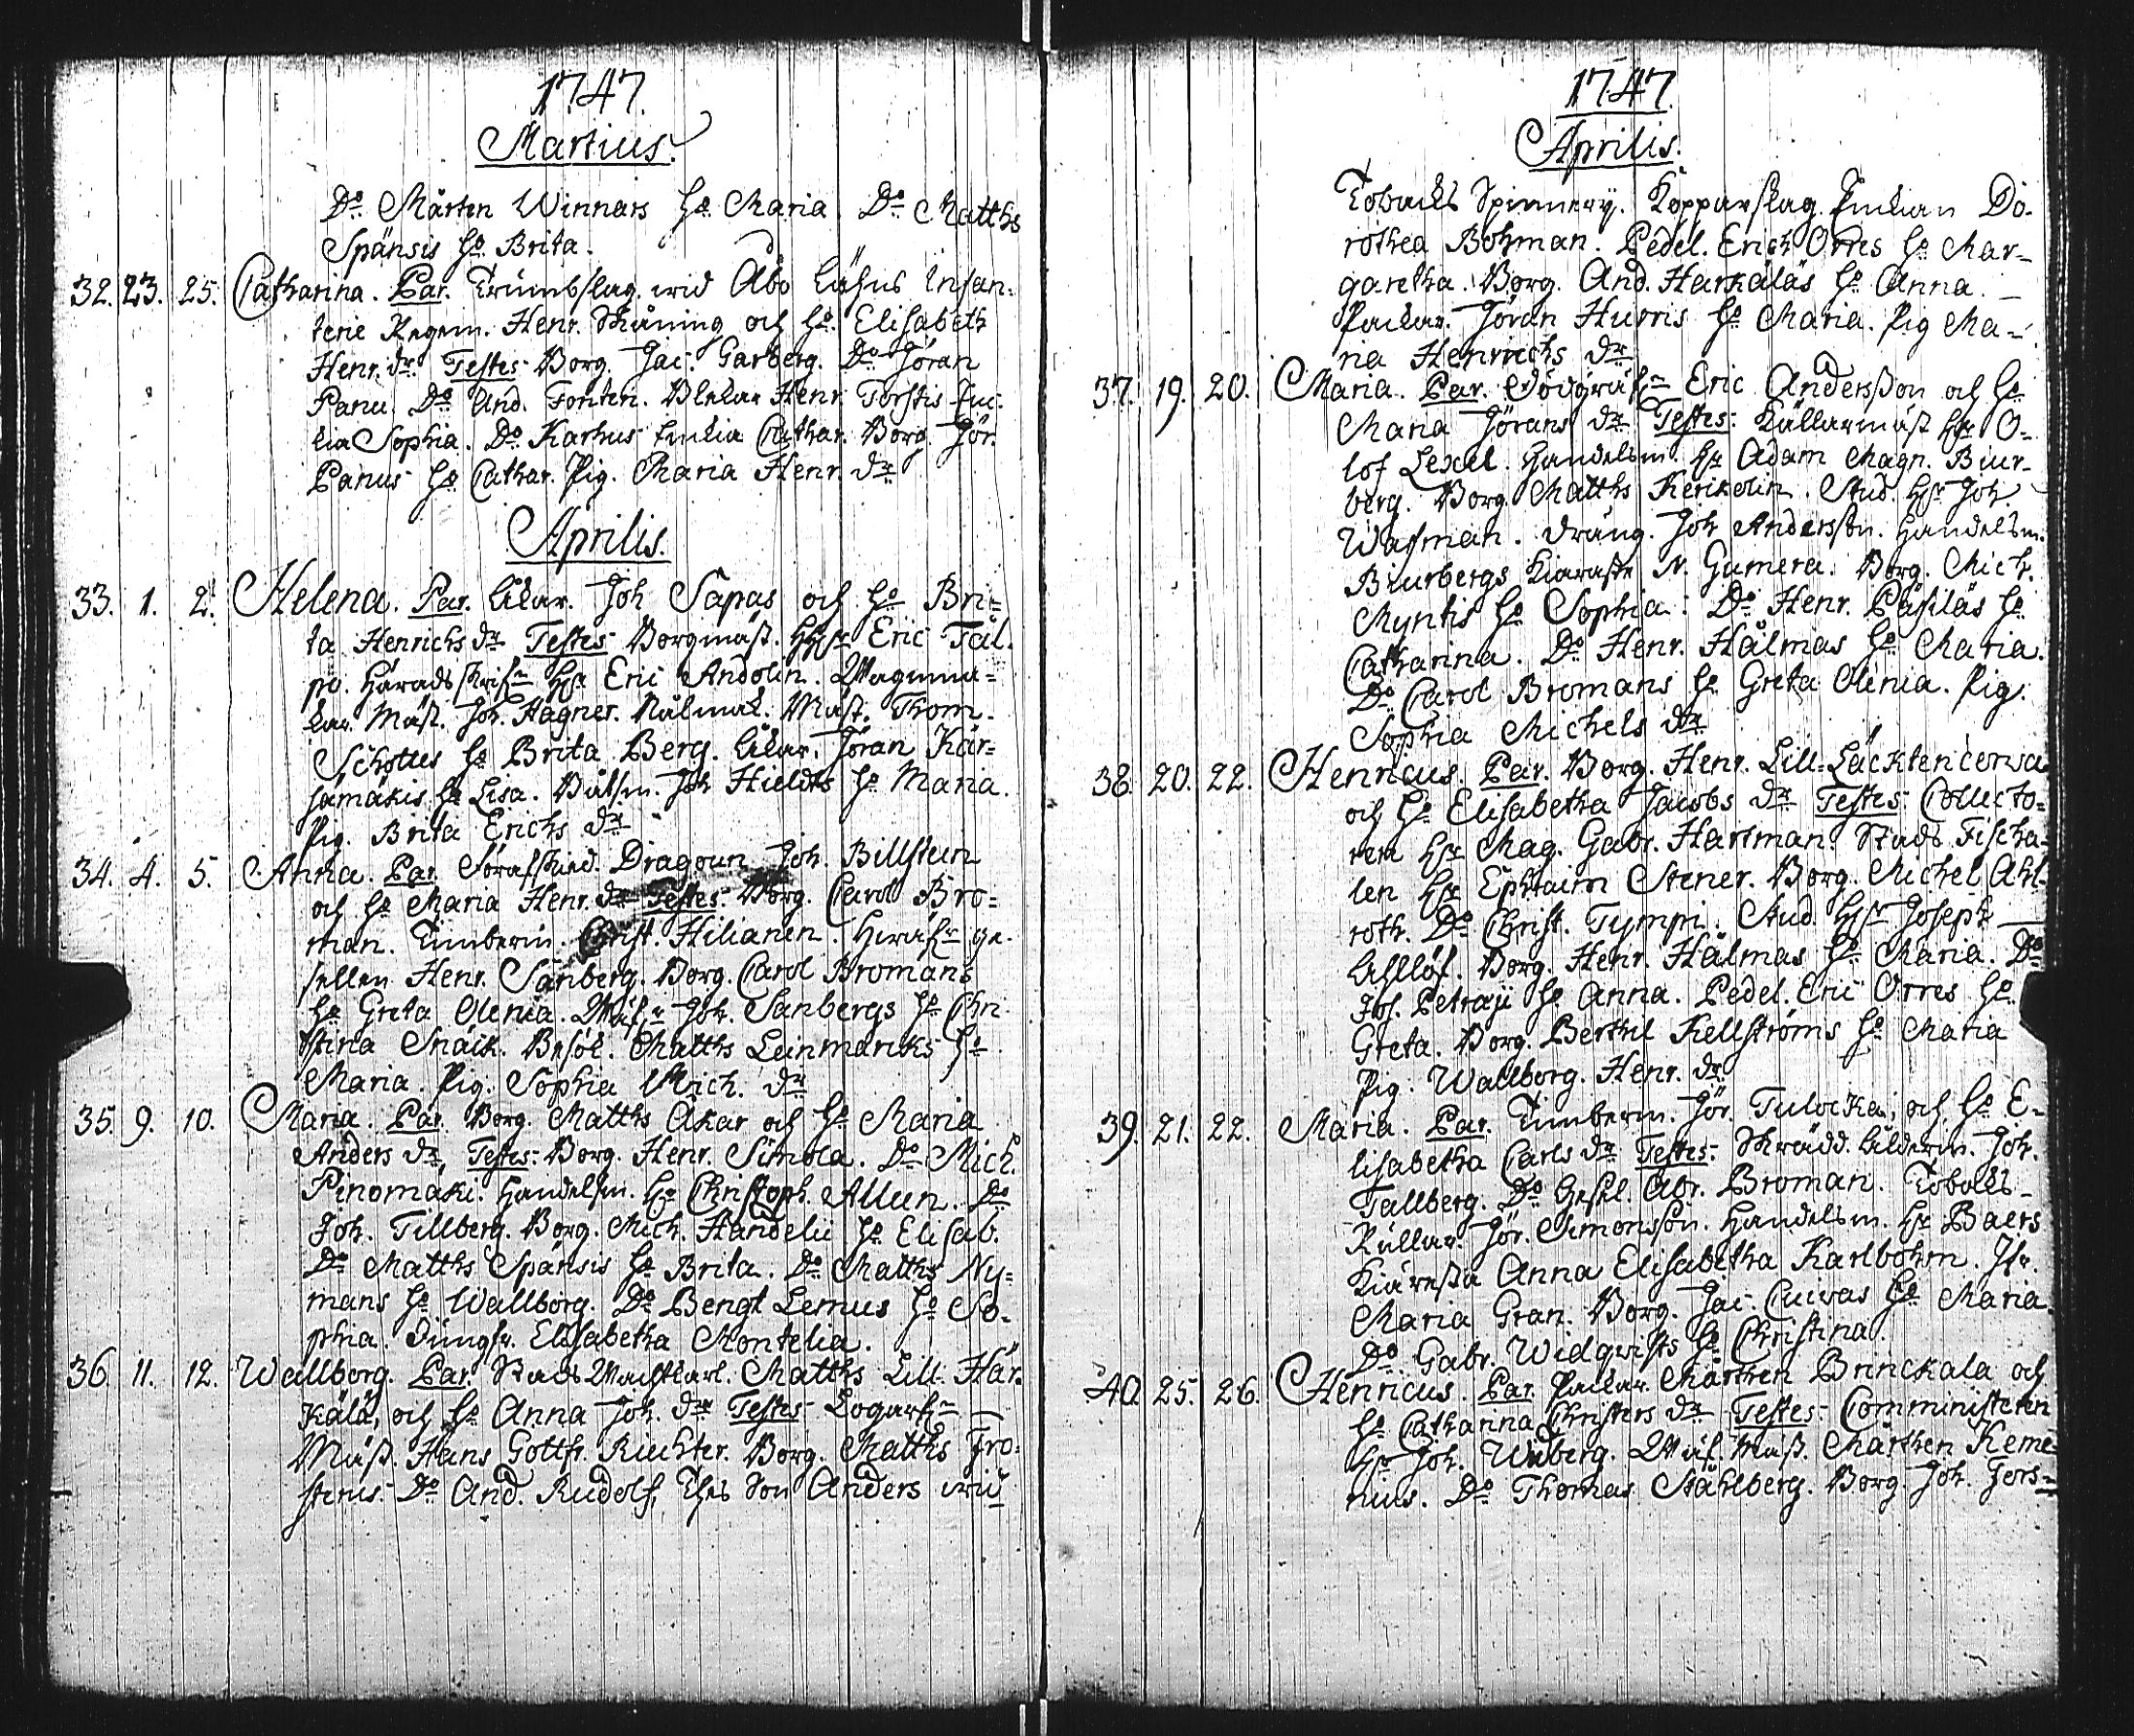 1747.
Martius.
Do Mårten Winnars ho Maria Do Matths
Spänsis ho Brita.
32. 23. 25. Catharina. Par. Trumbslag. wid Åbo Lähns Infan-
terie Regem. Henr. Skåning och ho Elisabeth
Henr. dr Testes Borg. Jac. Garberg. Do Jöran
Panu. Do And. Fonten. Henr. Torstis Enc-
kia Sophia. Do Karhus Enckia Cathar. Borg. Jör.
Panus ho Cathar. Pig. Maria Henr. dr
Aprilis.
33. 1. 2. Helena. Par. Åkar. Joh Sapas och ho Bri-
ta Henrichs dr Testes Borgmäst. HHr Eric Tål-
po. Häradsskrifn Hr Eric Andolin. Wagnma-
kar Mäst. Joh. Hagner. Nålmak. Mäst. Thom.
Schottes ho Brita Berg. Åkar. Jöran Kär-
jämäkis ho Lisa. Båtsm. Joh Hields ho Maria.
Pig. Brita Erichs dr
34. 4. 5. Anna. Par. Dragoun Joh. Billstein
och ho Maria Henr. dr Testes. Borg. Carol Bro-
man. Timberm. Christ. Hilianen. ge-
sellen Henr. Sanberg. Borg. Carol Bromans
ho Greta Olenia. Joh. Sanbergs ho Chri-
stina Snäik. Besök. Matths Leinmarcks ho
Maria. Pig. Sophia Mich. dr
35. 9. 10. Maria. Par. Borg. Matths Åkar och ho Maria
Anders dr, Testes. Borg. Henr. Simola. Do Mich.
Pinomäki. Handelsm. Hr Christoph. Alleen. Do
Joh. Tillberg. Borg. Mich. Handelii ho Elisab.
Do Matths Spänsis ho Brita. Do Matths Ny-
mans ho Wallborg. Do Bengt Lemus ho So-
phia. Jungfr. Elisabetha Montelia.
36. 11. 12. Wallborg. Par. Stads Wachtkarl. Matths Lill-Har-
kälä, och ho Anna Joh. dr Testes
Mäst. Hans Gottfr. Riechter. Borg. Matths Fro-
sterus. Do And. Rudolf, Thes Son Anders wid
1747.
Aprilis.
Tobacks Spinnery. Kopparslag. Enckian Do-
rothea Bohman. Pedel. Erich Orres ho Mar-
garetha. Borg. And. Harkäläs ho Anna.
Packar. Jöran Hurris ho Maria. Pig Ma-
ria Henrichs dr
37. 19. 20. Maria. Par. Eric Andersson och ho
Maria Jörans dr Testes: Källarmäst Hr O-
lof Lexell. Handelsm. Hr Adam Magn. Biur-
berg. Borg. Matths Kerikolin. Stud. Hr Joh.
Wasman. Dräng. Joh Andersson. Handelsm.
Biurbergs Kiäresta N. Gumera. Borg. Mich.
Myntis ho Sophia. Do Henr. Päsiläs ho
Catharina. Do Henr. Hälmas ho Maria.
Do Carol Bromans ho Greta Olenia. Pig.
Sophia Michels dr
38. 20. 22. Henricus. Par. Borg. Henr. Lill-
och ho Elisabetha Jacobs dr Testes: Collecto-
ren Hr Mag. Gabr. Hartman. Stads Fischa-
len Hr Ephraim Stener. Borg. Michel Ahl-
roth. Do Christ. Tympi. Stud. Hr Joseph
Borg. Henr. Hälmas ho Maria. Do
Jos. Petraji ho Anna. Pedel. Eric Orres ho
Greta. Borg. Berthil Kellströms ho Maria
Pig. Wallborg. Henr. dr
39. 21. 22. Maria. Par. Timberm. Jör. Tulocka, och ho E-
lisabetha Carls dr Testes: Skrädd. Ålderm. Joh.
Tallberg. Do Gesel. Abr. Broman. Tobaks-
Jör. Simonsson. Handelsm. Hr Baers
Kiäresta Anna Elisabetha Karlbohm. Jfr.
Maria Gran. Borg. Jac. Cuivas ho Maria.
Do Gabr. Widqvists ho Christina.
40. 25. 26. Henricus. Par. Packar. Mårthen Brinckala och
ho Catharina Christers dr Testes: Comministeren
Hr Joh. Wiberg. Wäf. Mäst. Mårthen Keme-
nus. Do Thomas Ståhlberg. Borg Joh. Fors-